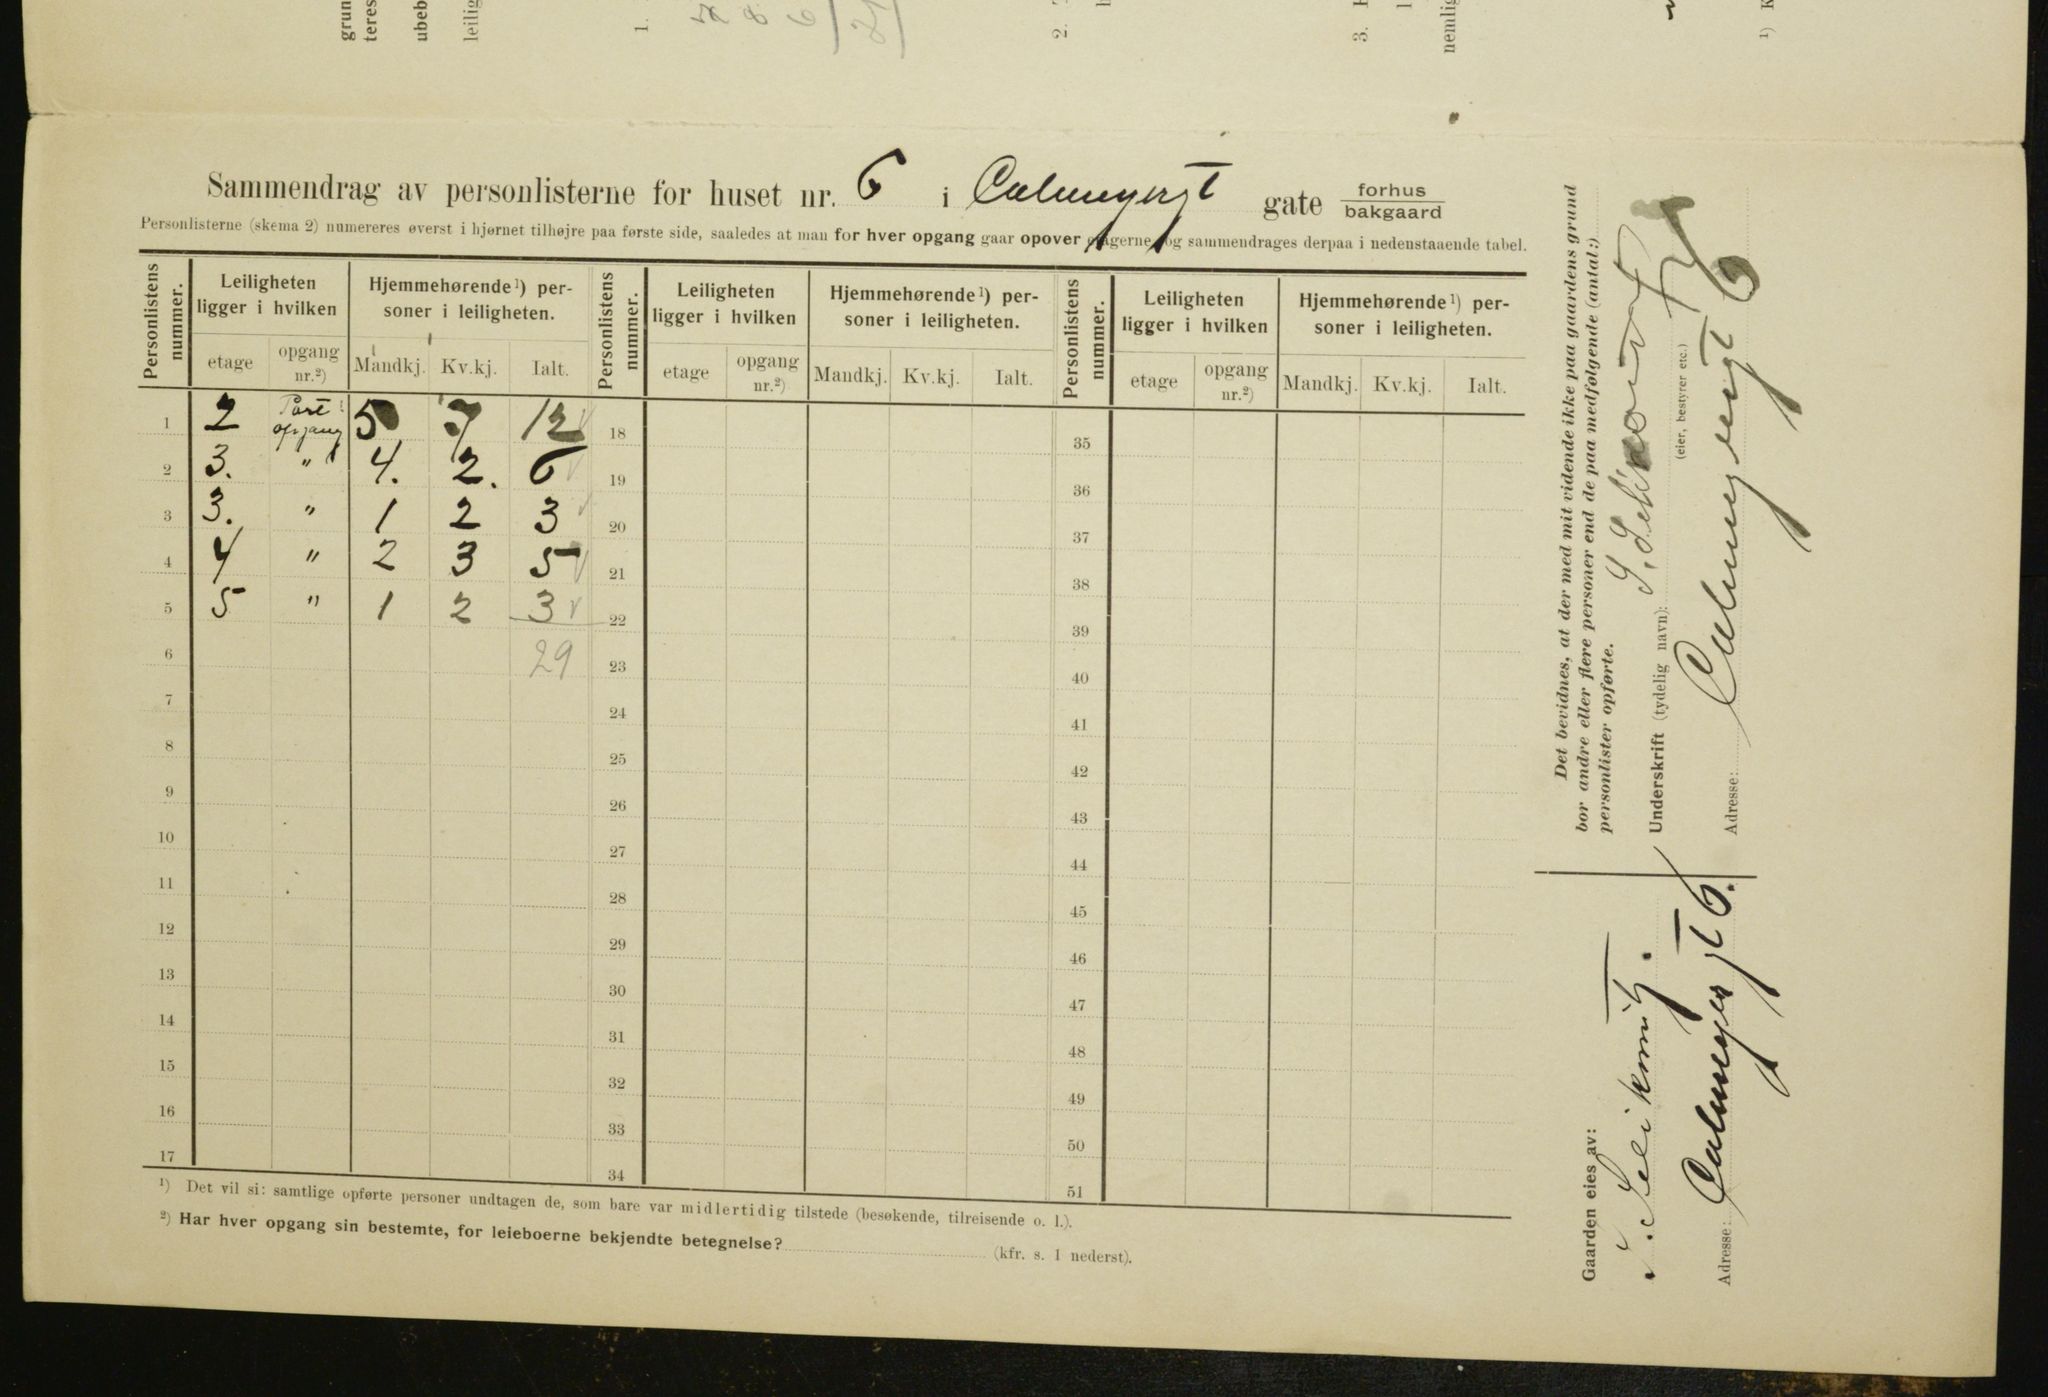 grun
teres
ubeb
leilig
1.
2.
3.
nemlig
¹) K
Sammendrag av personlisterne for huset nr. 6 i Calmeyergt gate forhus
bakgaard
Personlisterne (skema 2) numereres øverst i hjørnet tilhøjre paa første side, saaledes at man for hver opgang gaar opover etagerne og sammendrages derpaa i nedenstaaende tabel.
Personlistens nummer. | Leiligheten ligger i hvilken | Hjemmehørende¹) personer i leiligheten. | Personlistens nummer. | Leiligheten ligger i hvilken | Hjemmehørende¹) personer i leiligheten. | Personlistens nummer. | Leiligheten ligger i hvilken | Hjemmehørende¹) personer i leiligheten.
etage | opgang nr.²) | Mandkj. | Kv.kj. | Ialt. | etage | opgang nr.²) | Mandkj. | Kv.kj. | Ialt. | etage | opgang nr.²) | Mandkj. | Kv.kj. | Ialt.
1 2 Port opgang 5 7 12 18 35
2 3. " 4. 2. 6 19 36
3 3. " 1 2 3 20 37
4 4 " 2 3 5 21 38
5 5 " 1 2 3 22 39
6 29 23 40
7 24 41
8 25 42
9 26 43
10 27 44
11 28 45
12 29 46
13 30 47
14 31 48
15 32 49
16 33 50
17 34 51
¹) Det vil si: samtlige opførte personer undtagen de, som bare var midlertidig tilstede (besøkende, tilreisende o. l.).
²) Har hver opgang sin bestemte, for leieboerne bekjendte betegnelse? (kfr. s. 1 nederst).
Det bevidnes, at der med mit vidende ikke paa gaardens grund
bor andre eller flere personer end de paa medfølgende (antal:)
personlister opførte.
Underskrift (tydelig navn): S.
(eier, bestyrer etc.)
Adresse: Calmeyergt 6
Gaarden eies av:
S.
Adresse: Calmeyergt 6.